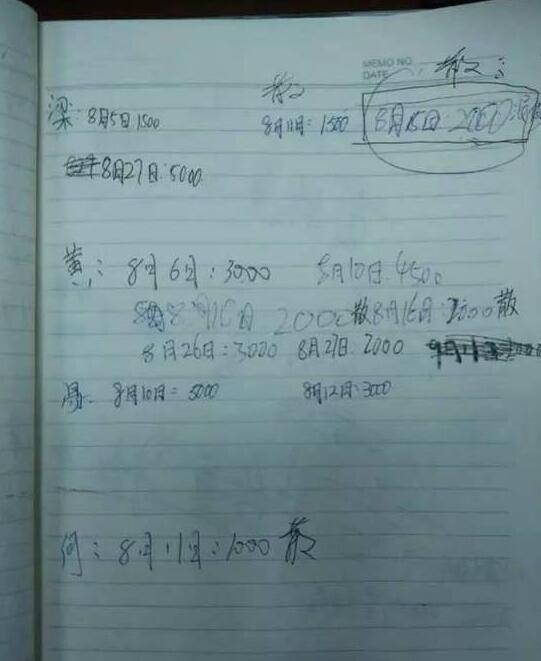 MEMO NO.
DATE
散: 散:
梁: 8月5日: 1500 8月11日: 1500 8月15日: 2000
8月27日: 5000
黄: 8月6日: 3000 8月10日: 4500
8月16日 2000散 8月16日 2000散
8月26日: 3000 8月27日: 2000
冯: 8月10日: 5000 8月12日: 3000
何: 8月11日: 1000 散